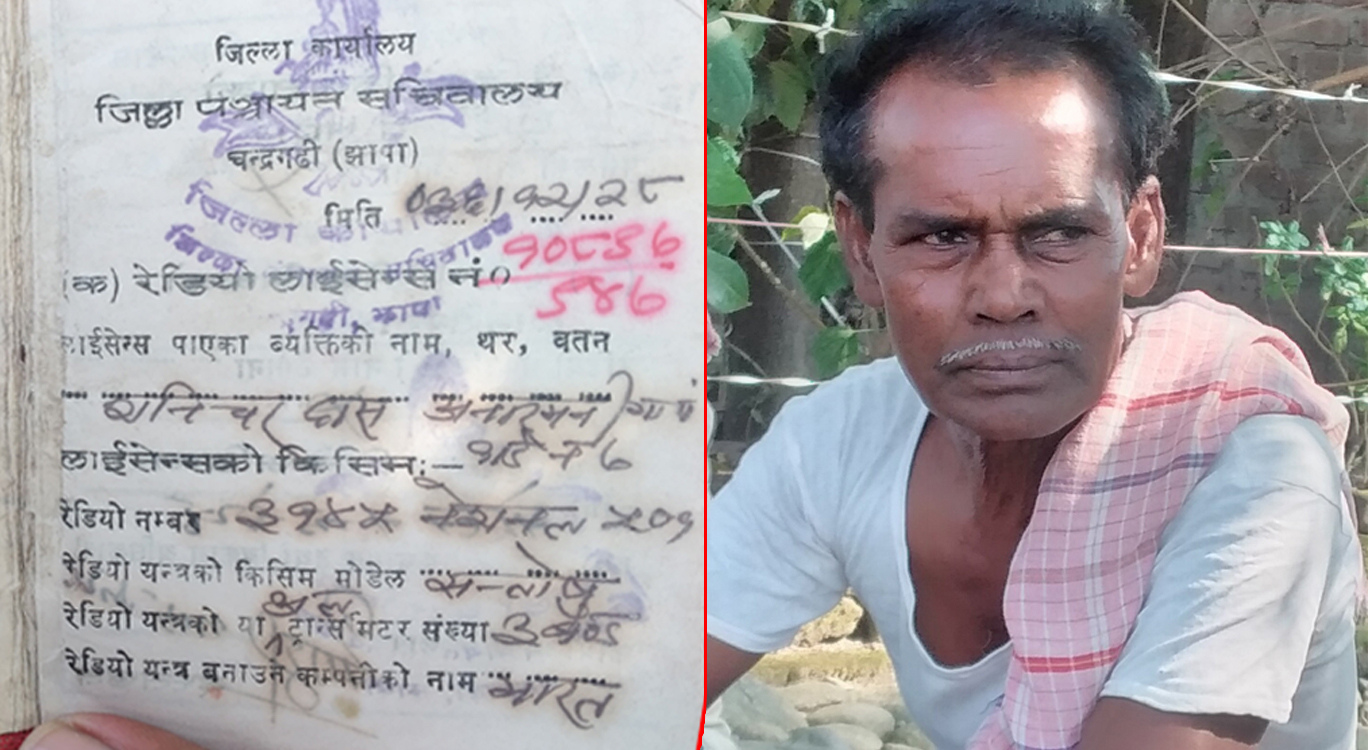 जिल्ला कार्यालय
जिल्ला पञ्चायत सचिवालय
चन्द्रगढी (झापा)
मिति ०३८/१२/२८
(क) रेडियो लाईसेन्स नं० १०८३६
५४६
लाईसेन्स पाएका व्यक्तिको नाम, थर, वतन
शनिचर दास अनारमनी
लाईसेन्सको किसिम:-
रेडियो नम्बर ३१४५ नेशनल ५०१
रेडियो यन्त्रको किसिम मोडेल सन्तोष
रेडियो यन्त्रको या ट्रान्समिटर संख्या ३ बेण्ड
रेडियो यन्त्र बनाउने कम्पनीको नाम भारत